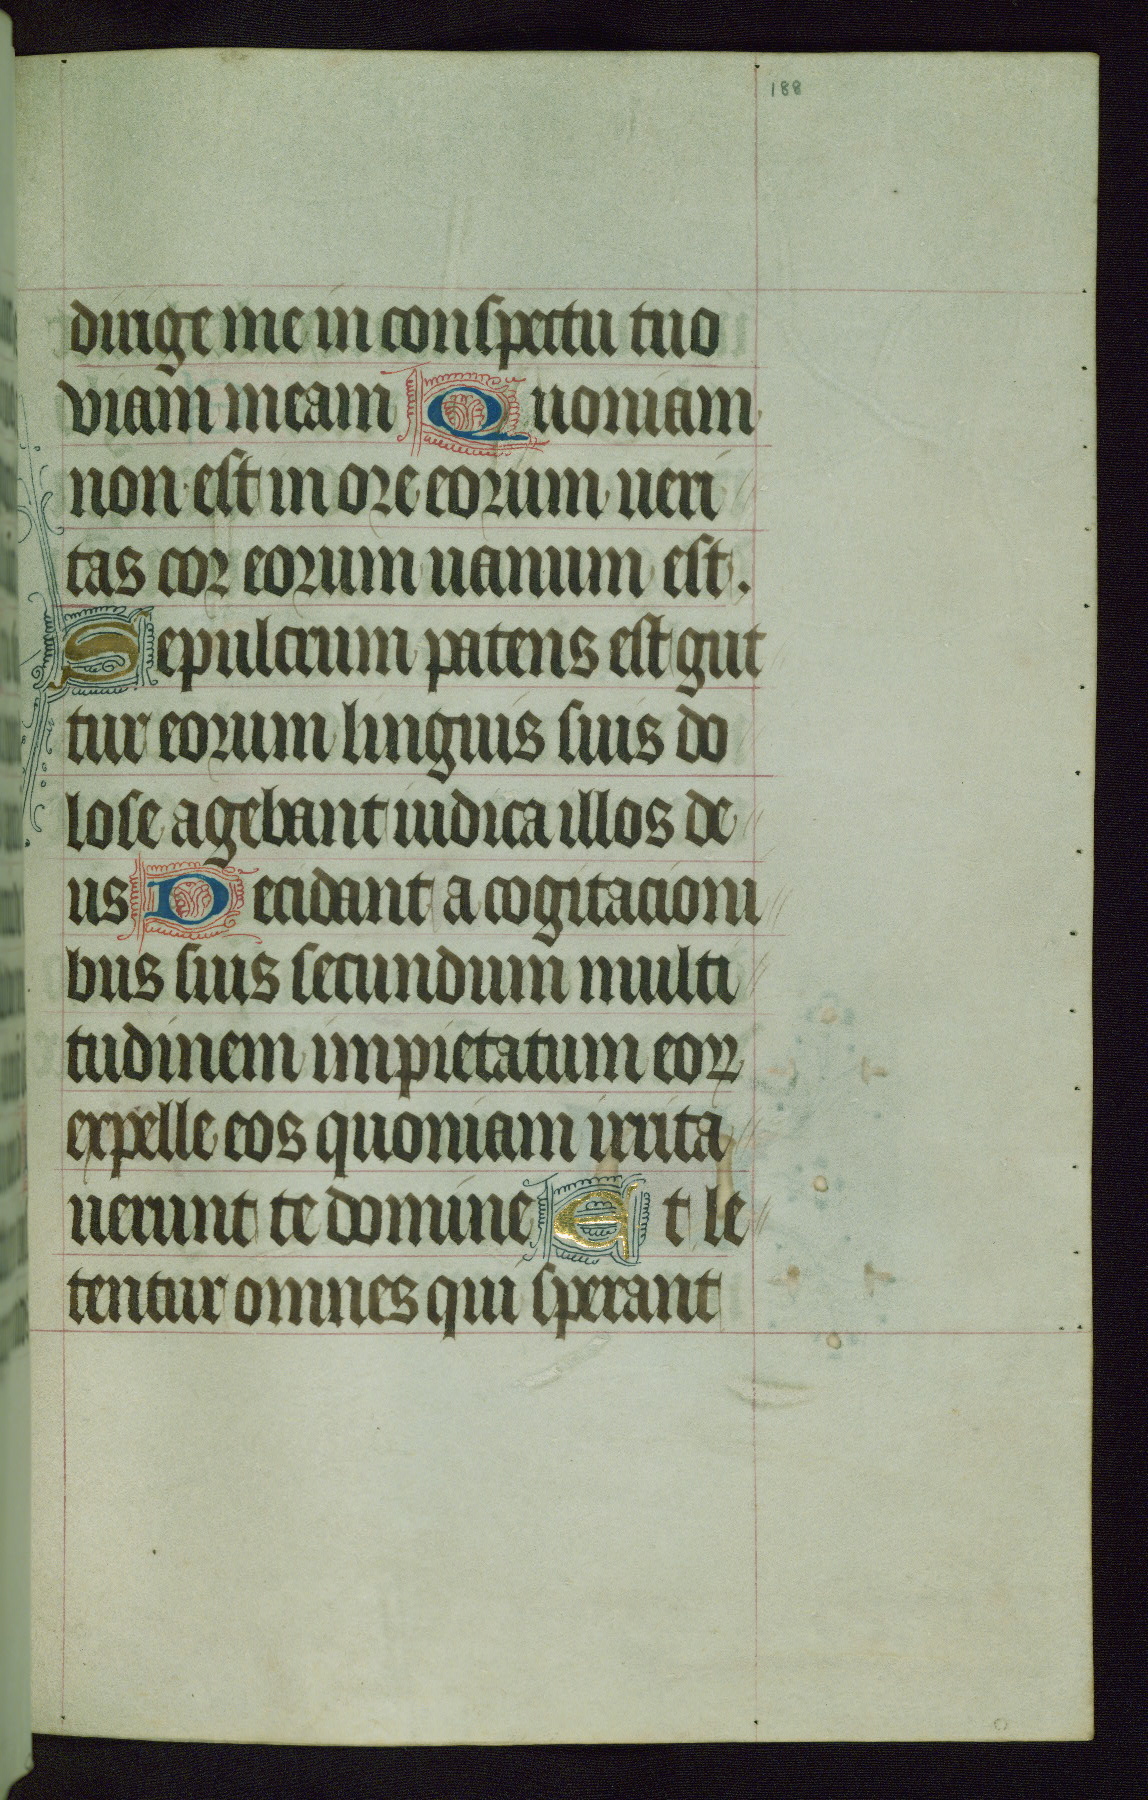 188
dirige me in conspectu tuo
viam meam Quoniam
non est in ore eorum ueri
tas cor eorum uanum est.
Sepulcrum patens est gut
tur eorum linguis suis do
lose agebant iudica illos de
us Decidant a cogitacioni
bus suis secundum multi
tudinem impietatum eoꝝ
expelle eos quoniam irrita
uerunt te domine Et le
tentur omnes qui sperant